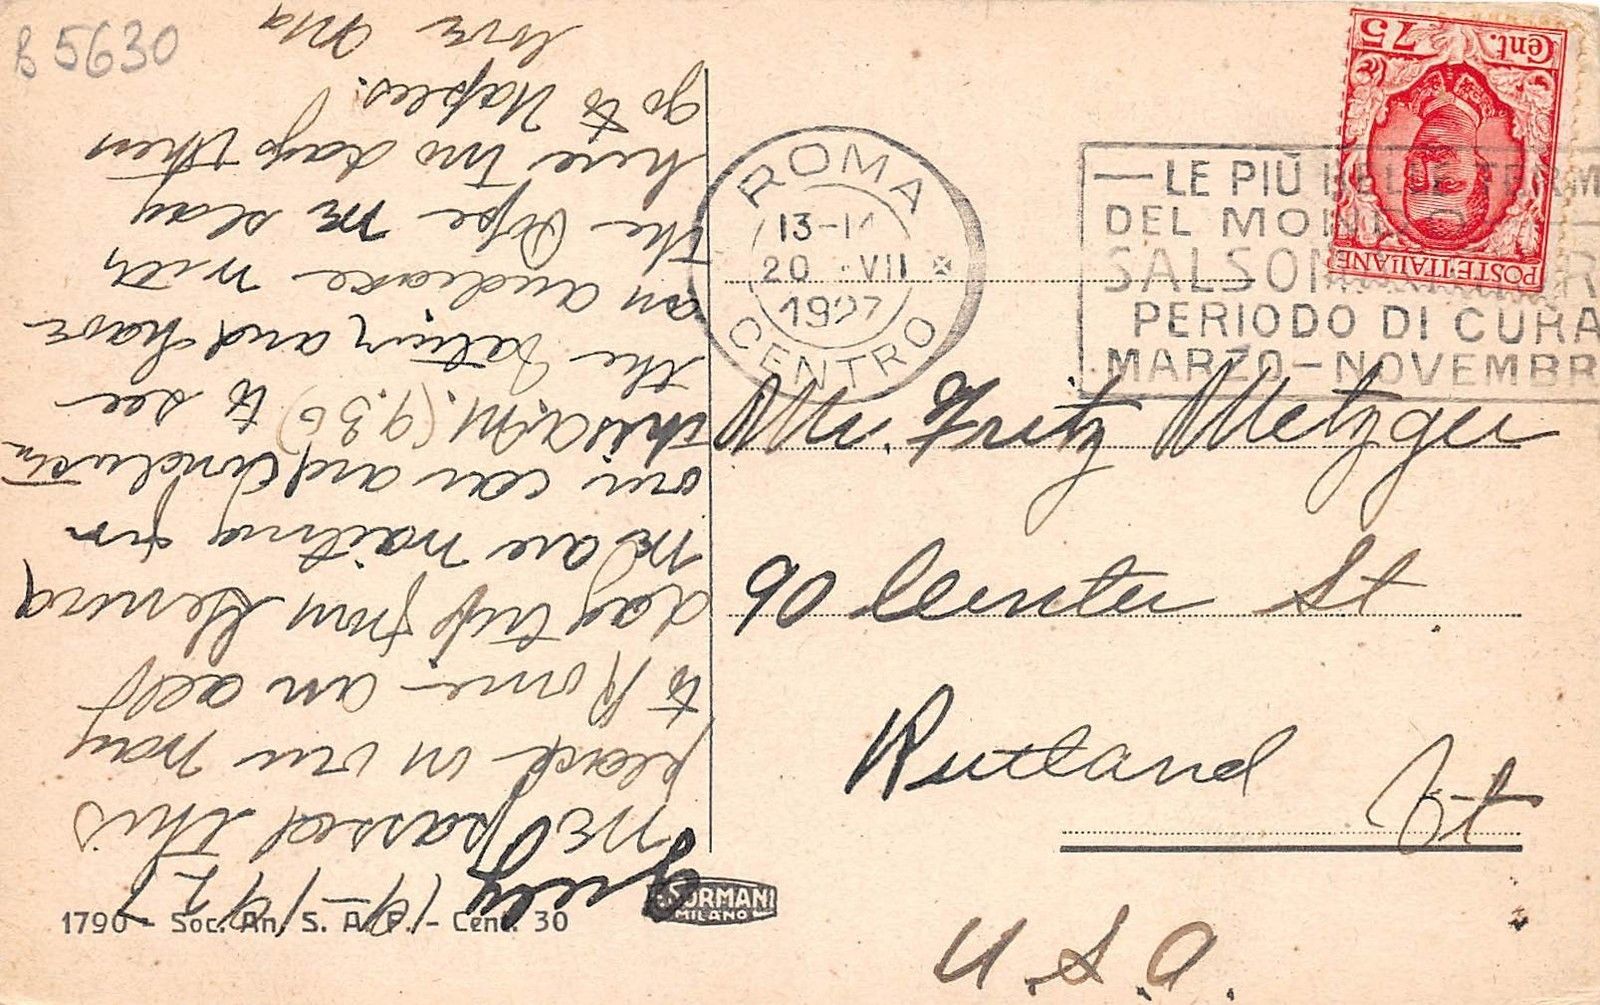 B 5630
Cent. 75
POSTE ITALIANE
ROMA
CENTRO
13-1
20 VII
1927
— LE PIÙ BELLE TERM
DEL MONDO
SALSOM
PERIODO DI CURA
MARZO – NOVEMBR
Mr. Fritz Metzger
90 Center St.
Rutland Vt
U.S.A.
July 19-1927
We passed this
place on our way
to Rome – an all
day trip from Genova
We are waiting for
our car and conductor
this A.M. (9.30) to see
the and have
an audience with
the Pope We stay
here two days then
go to Naples.
love Ma
1790 – Soc. An. S. A. F. – Cent. 30
SORMANI
MILANO